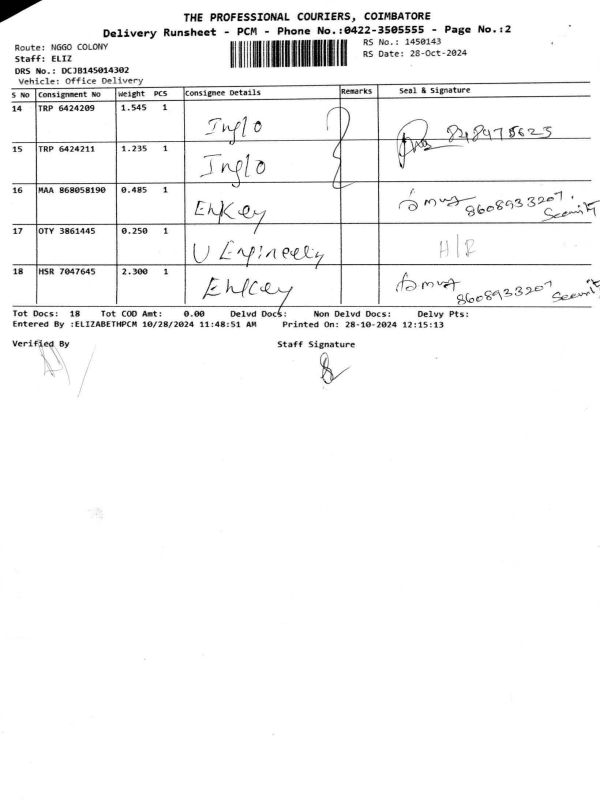 THE PROFESSIONAL COURIERS, COIMBATORE
Delivery Runsheet - PCM - Phone No.:0422-3505555 - Page No.:2
Route: NGGO COLONY
RS No.: 1450143
Staff: ELIZ
RS Date: 28-Oct-2024
DRS No.: DCJB145014302
Vehicle: Office Delivery
S No Consignment No Weight PCS Consignee Details Remarks Seal & Signature
14 TRP 6424209 1.545 1 Inglo
15 TRP 6424211 1.235 1 Inglo
16 MAA 868058190 0.485 1 EnKey 8608933207
17 OTY 3861445 0.250 1 U Engineering H/R
18 HSR 7047645 2.300 1 EnKey 8608933207
Tot Docs: 18 Tot COD Amt: 0.00 Delvd Docs: Non Delvd Docs: Delvy Pts:
Entered By :ELIZABETHPCM 10/28/2024 11:48:51 AM Printed On: 28-10-2024 12:15:13
Verified By Staff Signature